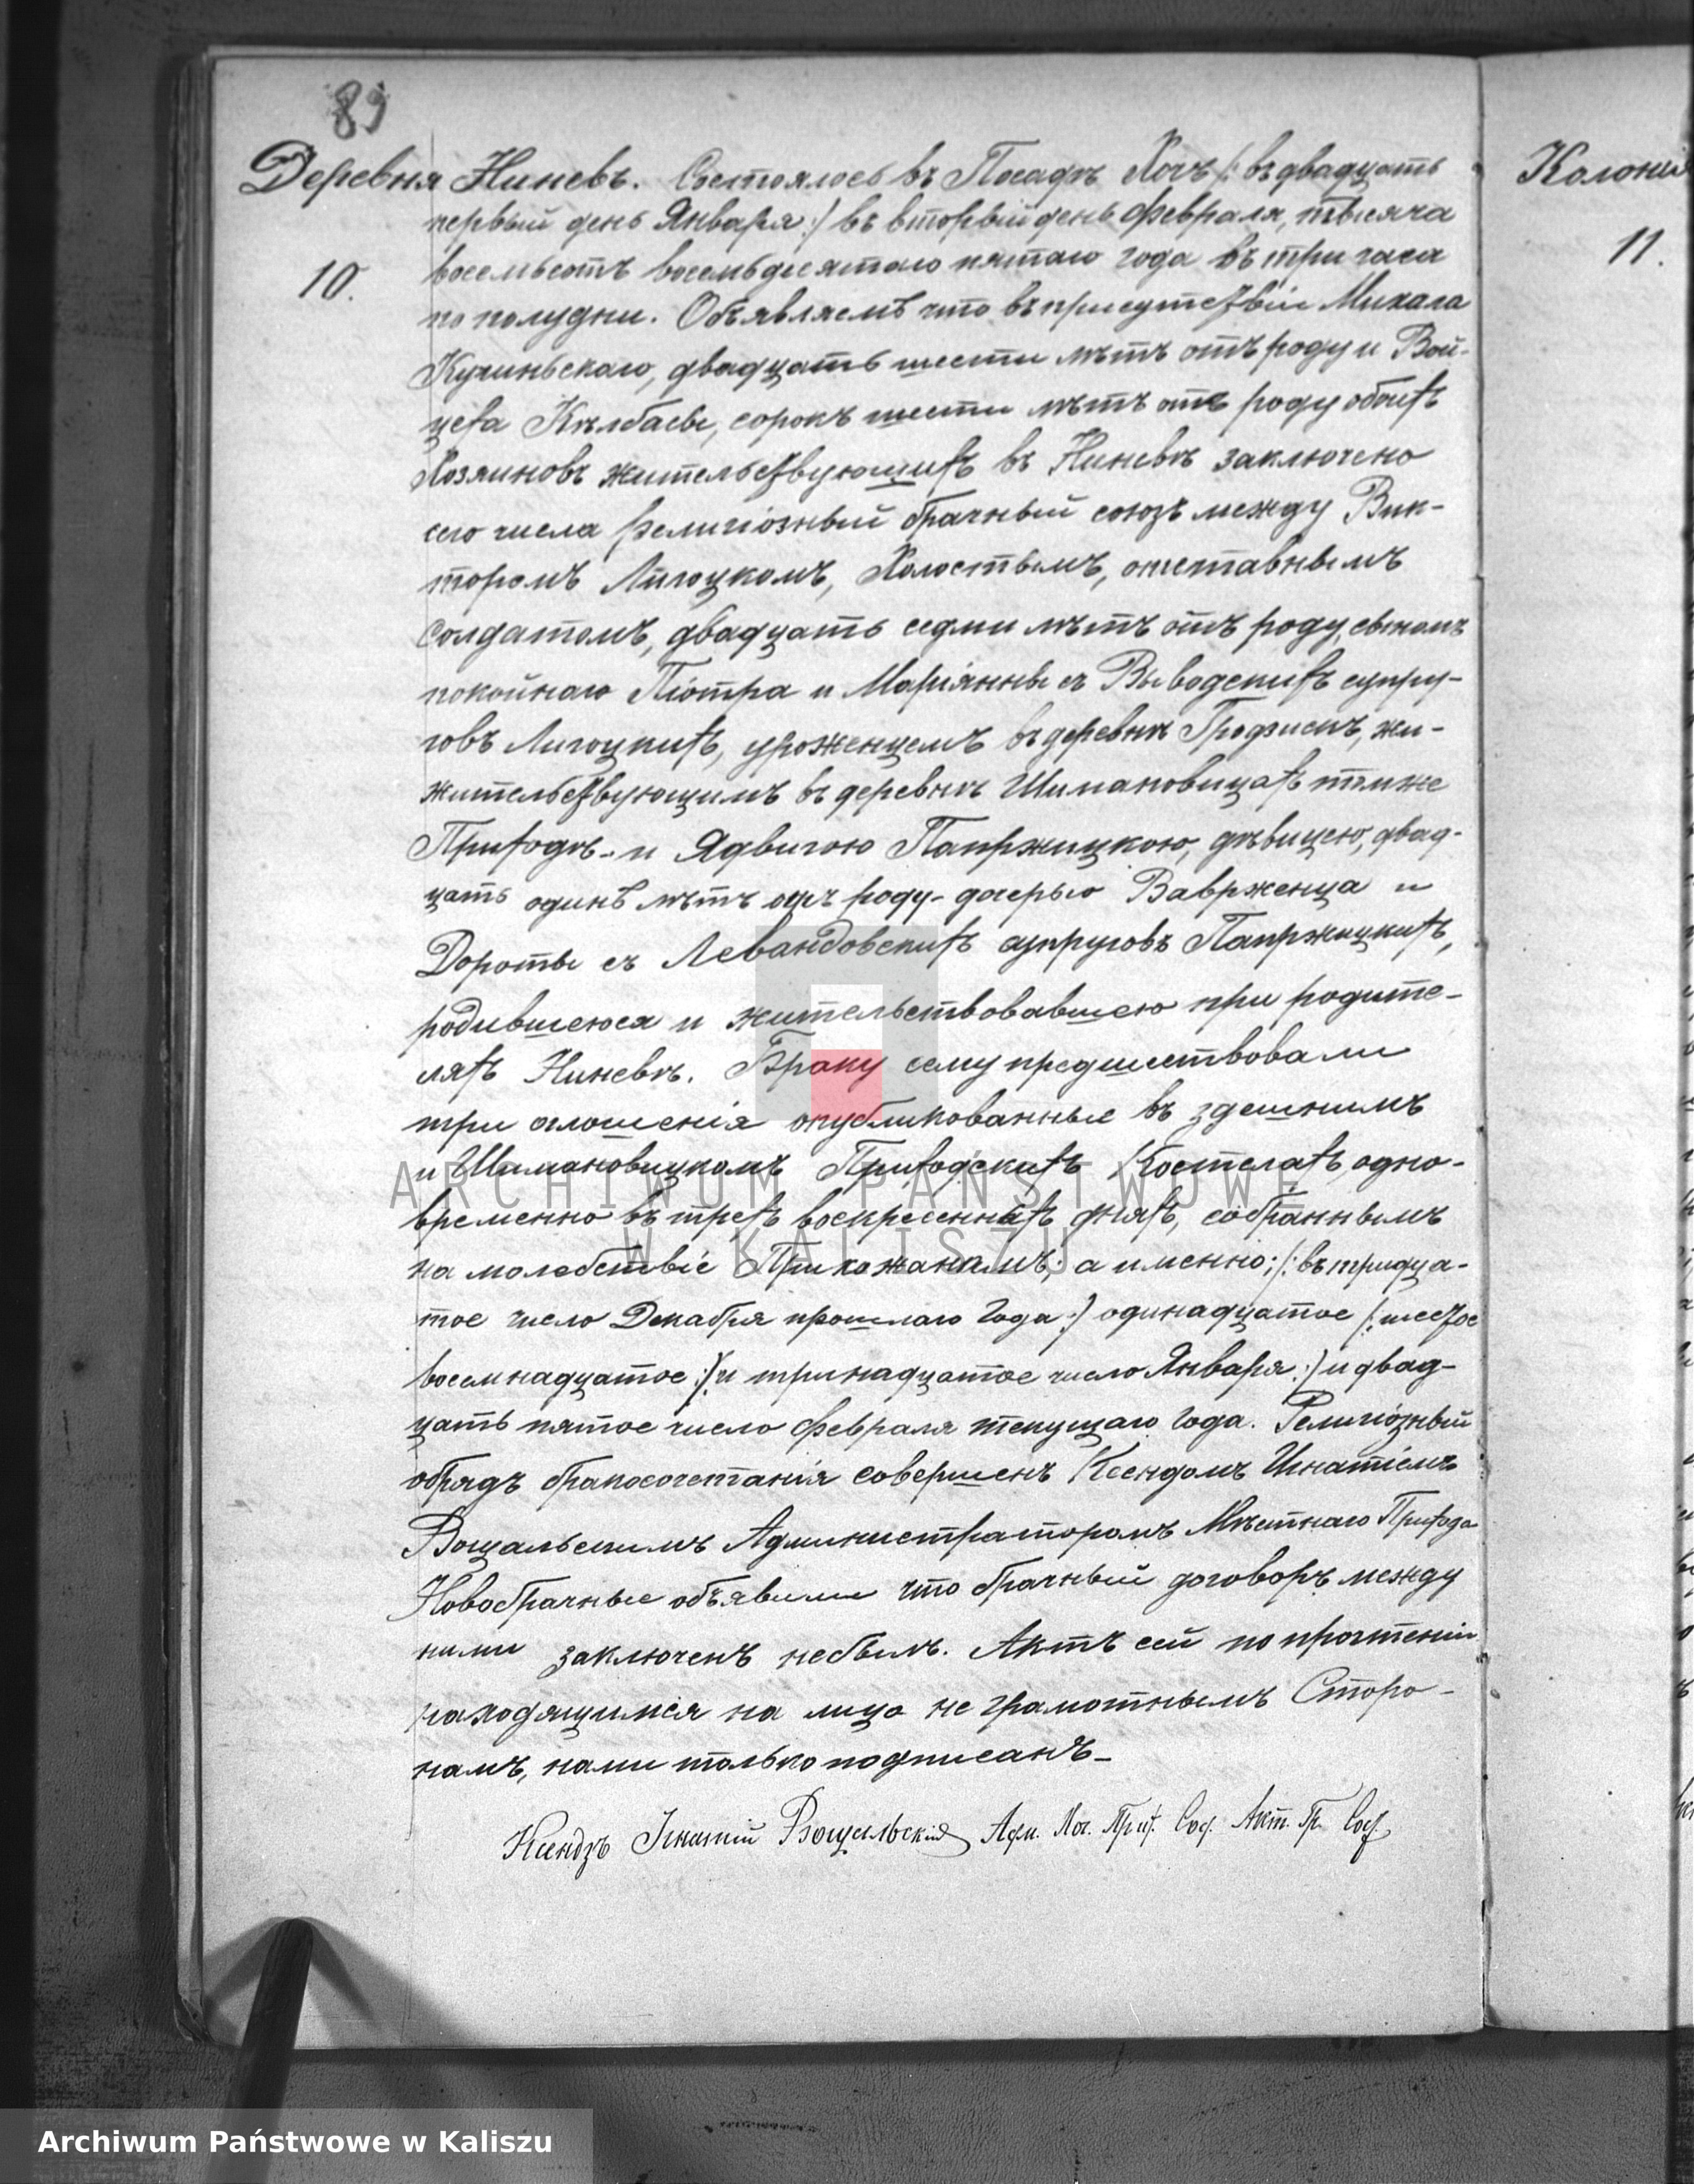 89
Деревня Ниневъ. Состоялось въ Посадѣ Хочъ /: въ двадцать
первый день Января :/ въ вторый день Февраля, тысяча
10.
восемьсотъ восемьдесятаго пятаго года въ три часа
по полудни. Объявляемъ что въ присутствіи Михала
Кучиньскаго, двадцать шести лѣтъ отъ роду и Вой-
цеха Кѣлбасы, сорокъ шести лѣтъ отъ роду обоихъ
Хозяиновъ жительствующихъ въ Ниневѣ заключено
сего числа религіозный брачный союзъ между Вик-
торомъ Лигоцкомъ, Холостымъ, отставнымъ
солдатомъ, двадцать седми лѣтъ отъ роду, сыномъ
покойнаго Піотра и Маріянны съ Выводскихъ супру-
говъ Лигоцкихъ, уроженцемъ въ деревнѣ Гродзискъ, жи-
жительствующимъ въ деревнѣ Шимановицахъ тѣмже
Приходѣ - и Ядвигою Папржицкою, дѣвицею, двад-
цать одинъ лѣтъ отъ роду - дочерью Ваврженца и
Дороты съ Левандовскихъ супруговъ Папржицкихъ,
родившеюся и жительствовавшею при родите-
ляхъ Ниневѣ. Браку сему предшествовали
три оглошенія опубликованные въ здешнимъ
и Шимановицкомъ Приходскихъ Костелахъ, одно-
временно въ трехъ воскресенныхъ дняхъ, собраннымъ
на молебствіе Прихожанамъ; а именно; /: въ тридца-
тое число Декабря прошлаго Года :/ одинадцатое /: шестое
восемнадцатое :/ и тринадцатое число Января :/ и двад-
цать пятое число Февраля текущаго Года. Религіозный
обрядъ бракосочетанія совершенъ Ксендзомъ Игнатіемъ
Рощальскимъ Администраторомъ Мѣстнаго Прихода
Новобрачные объявили что брачный договоръ между
ними заключенъ небылъ. Актъ сей по прочтеніи
находящимся на лицо не грамотнымъ Сторо-
намъ, нами только подписанъ -
Ксендзъ Игнатій Рощальскій Адм. Хоч. Прих. Сод. Акт. Гр. Сос.
Колонія
11.
ARCHIWUM PAŃSTWOWE
W KALISZU
Archiwum Państwowe w Kaliszu